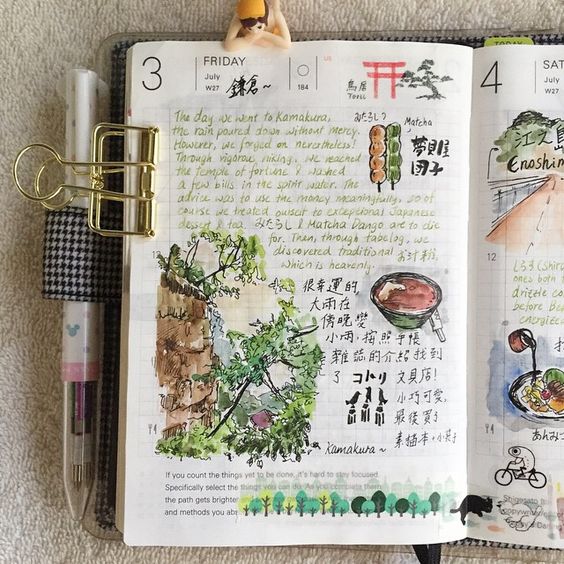 3
FRIDAY
July
W27
鎌倉~
184
US
鳥居
TORII
The day we went to Kamakura,
the rain poured down without mercy.
However, we forged on nevertheless!
Through vigorous hiking, we reached
the temple of fortune & washed
a few bills in the spirit water. The
advice was to use the money meaningfully, so of
course we treated ourself to exceptional Japanese
dessert & tea. みたらし & Matcha Dango are to die
for. Then, through tabelog, we
discovered traditional お汁粉,
which is heavenly.
みたらし
Matcha
夢見屋
団子
12
很幸運的
大雨在
傍晚變
小雨,按照手帳
雜誌的介紹找到
了 コトリ 文具店!
小巧可愛,
最後買了
素描本,小
Kamakura~
If you count the things yet to be done, it's hard to stay focused.
Specifically select the things you can do. As you complete them,
the path gets brighter
and methods you
TODAY
4
SA
July
W27
江之島
Enoshim
12
しらす (Shir
ones both
drizzle
before
energize
あんみつ
Shigesato